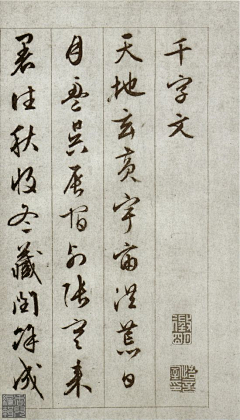 千字文
天地玄黃宇宙洪荒日
月盈昃辰宿列張寒來
暑往秋收冬藏閏餘成